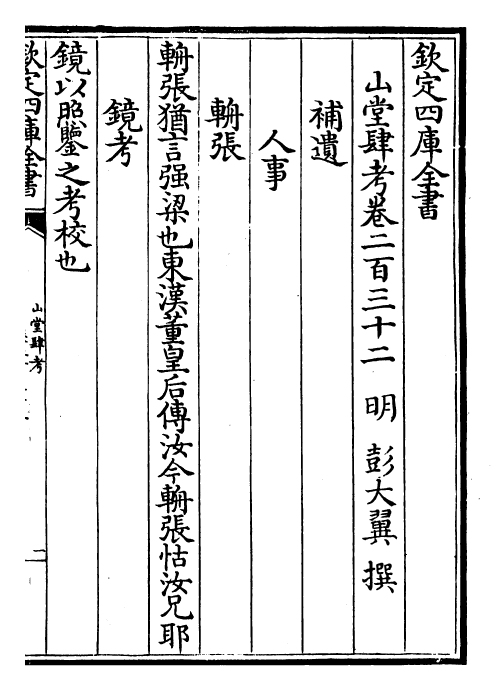 欽定四庫全書
山堂肆考卷二百三十二　明　彭大翼　撰
補遺
人事
輈張
輈張猶言强梁也東漢董皇后傳汝今輈張怙汝兄耶
鏡考
鏡以照鑒之考校也
欽定四庫全書
山堂肆考
二